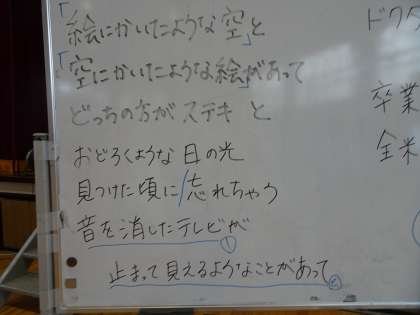 「絵にかいたような空」と
「空にかいたような絵」があって
どっちの方がステキ と
おどろくような 目の光
見つけた頃に/忘れちゃう
音を消したテレビが
①
止まって見えるようなことがあって
②
ドクタ
卒業
全米